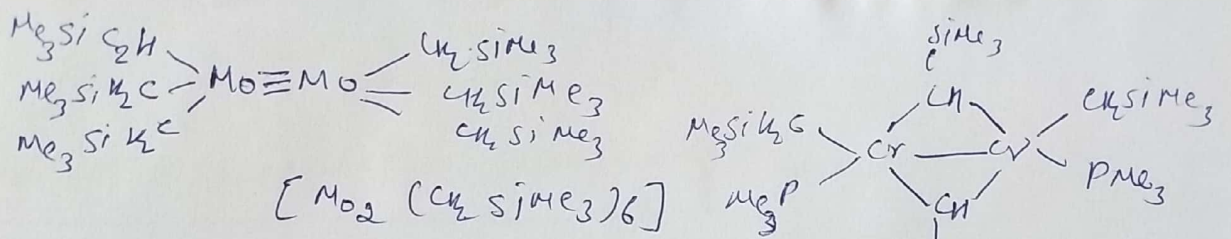 Me3Si C2H
Me3SiH2C
Me3SiH2C
Mo≡Mo
CH2SiMe3
CH2SiMe3
CH2SiMe3
[Mo2 (CH2SiMe3)6]
SiMe3
CH
Me3SiH2C
Cr — Cr
CH2SiMe3
Me3P
PMe3
CH